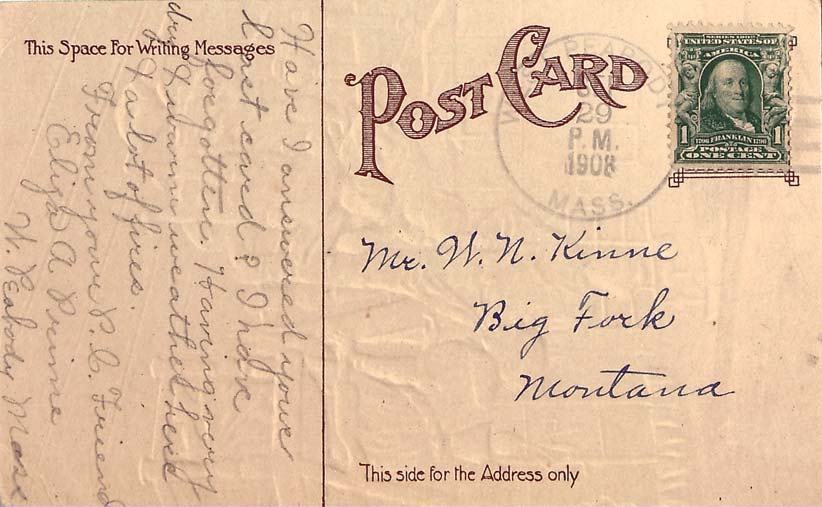 This Space For Writing Messages
Have I answered your
last card? I have
forgotten. Having very
dry & warm weather here
& a lot of fires.
From your P. C. Friend
Eliza A Prime
W. Peabody Mass
POST CARD
PEABODY
29
P. M.
1908
MASS.
SERIES 1902
UNITED STATES OF
AMERICA
1 1706 FRANKLIN 1790 1
POSTAGE
ONE CENT
Mr. W. N. Kinne
Big Fork
Montana
This side for the Address only